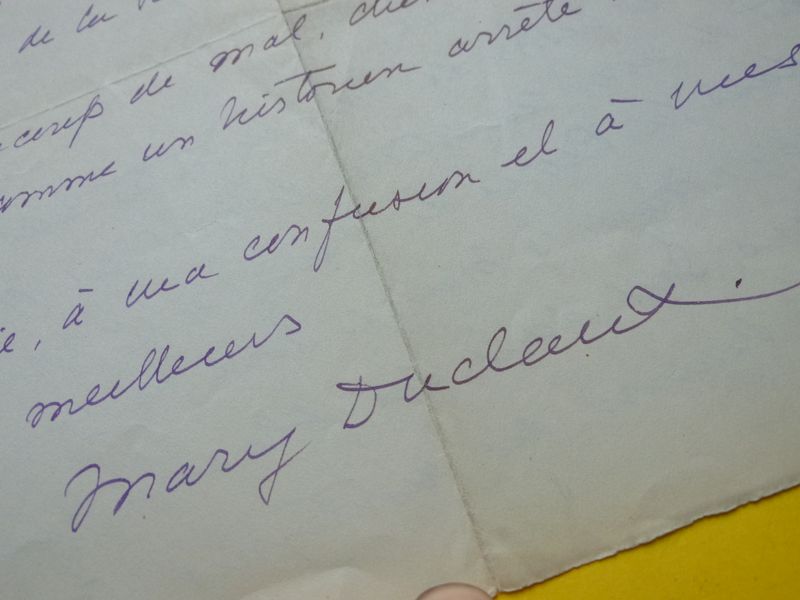 de la
de mal.
comme un historien arrête
, à ma confusion et à mes
meilleurs
Mary Duclaux.